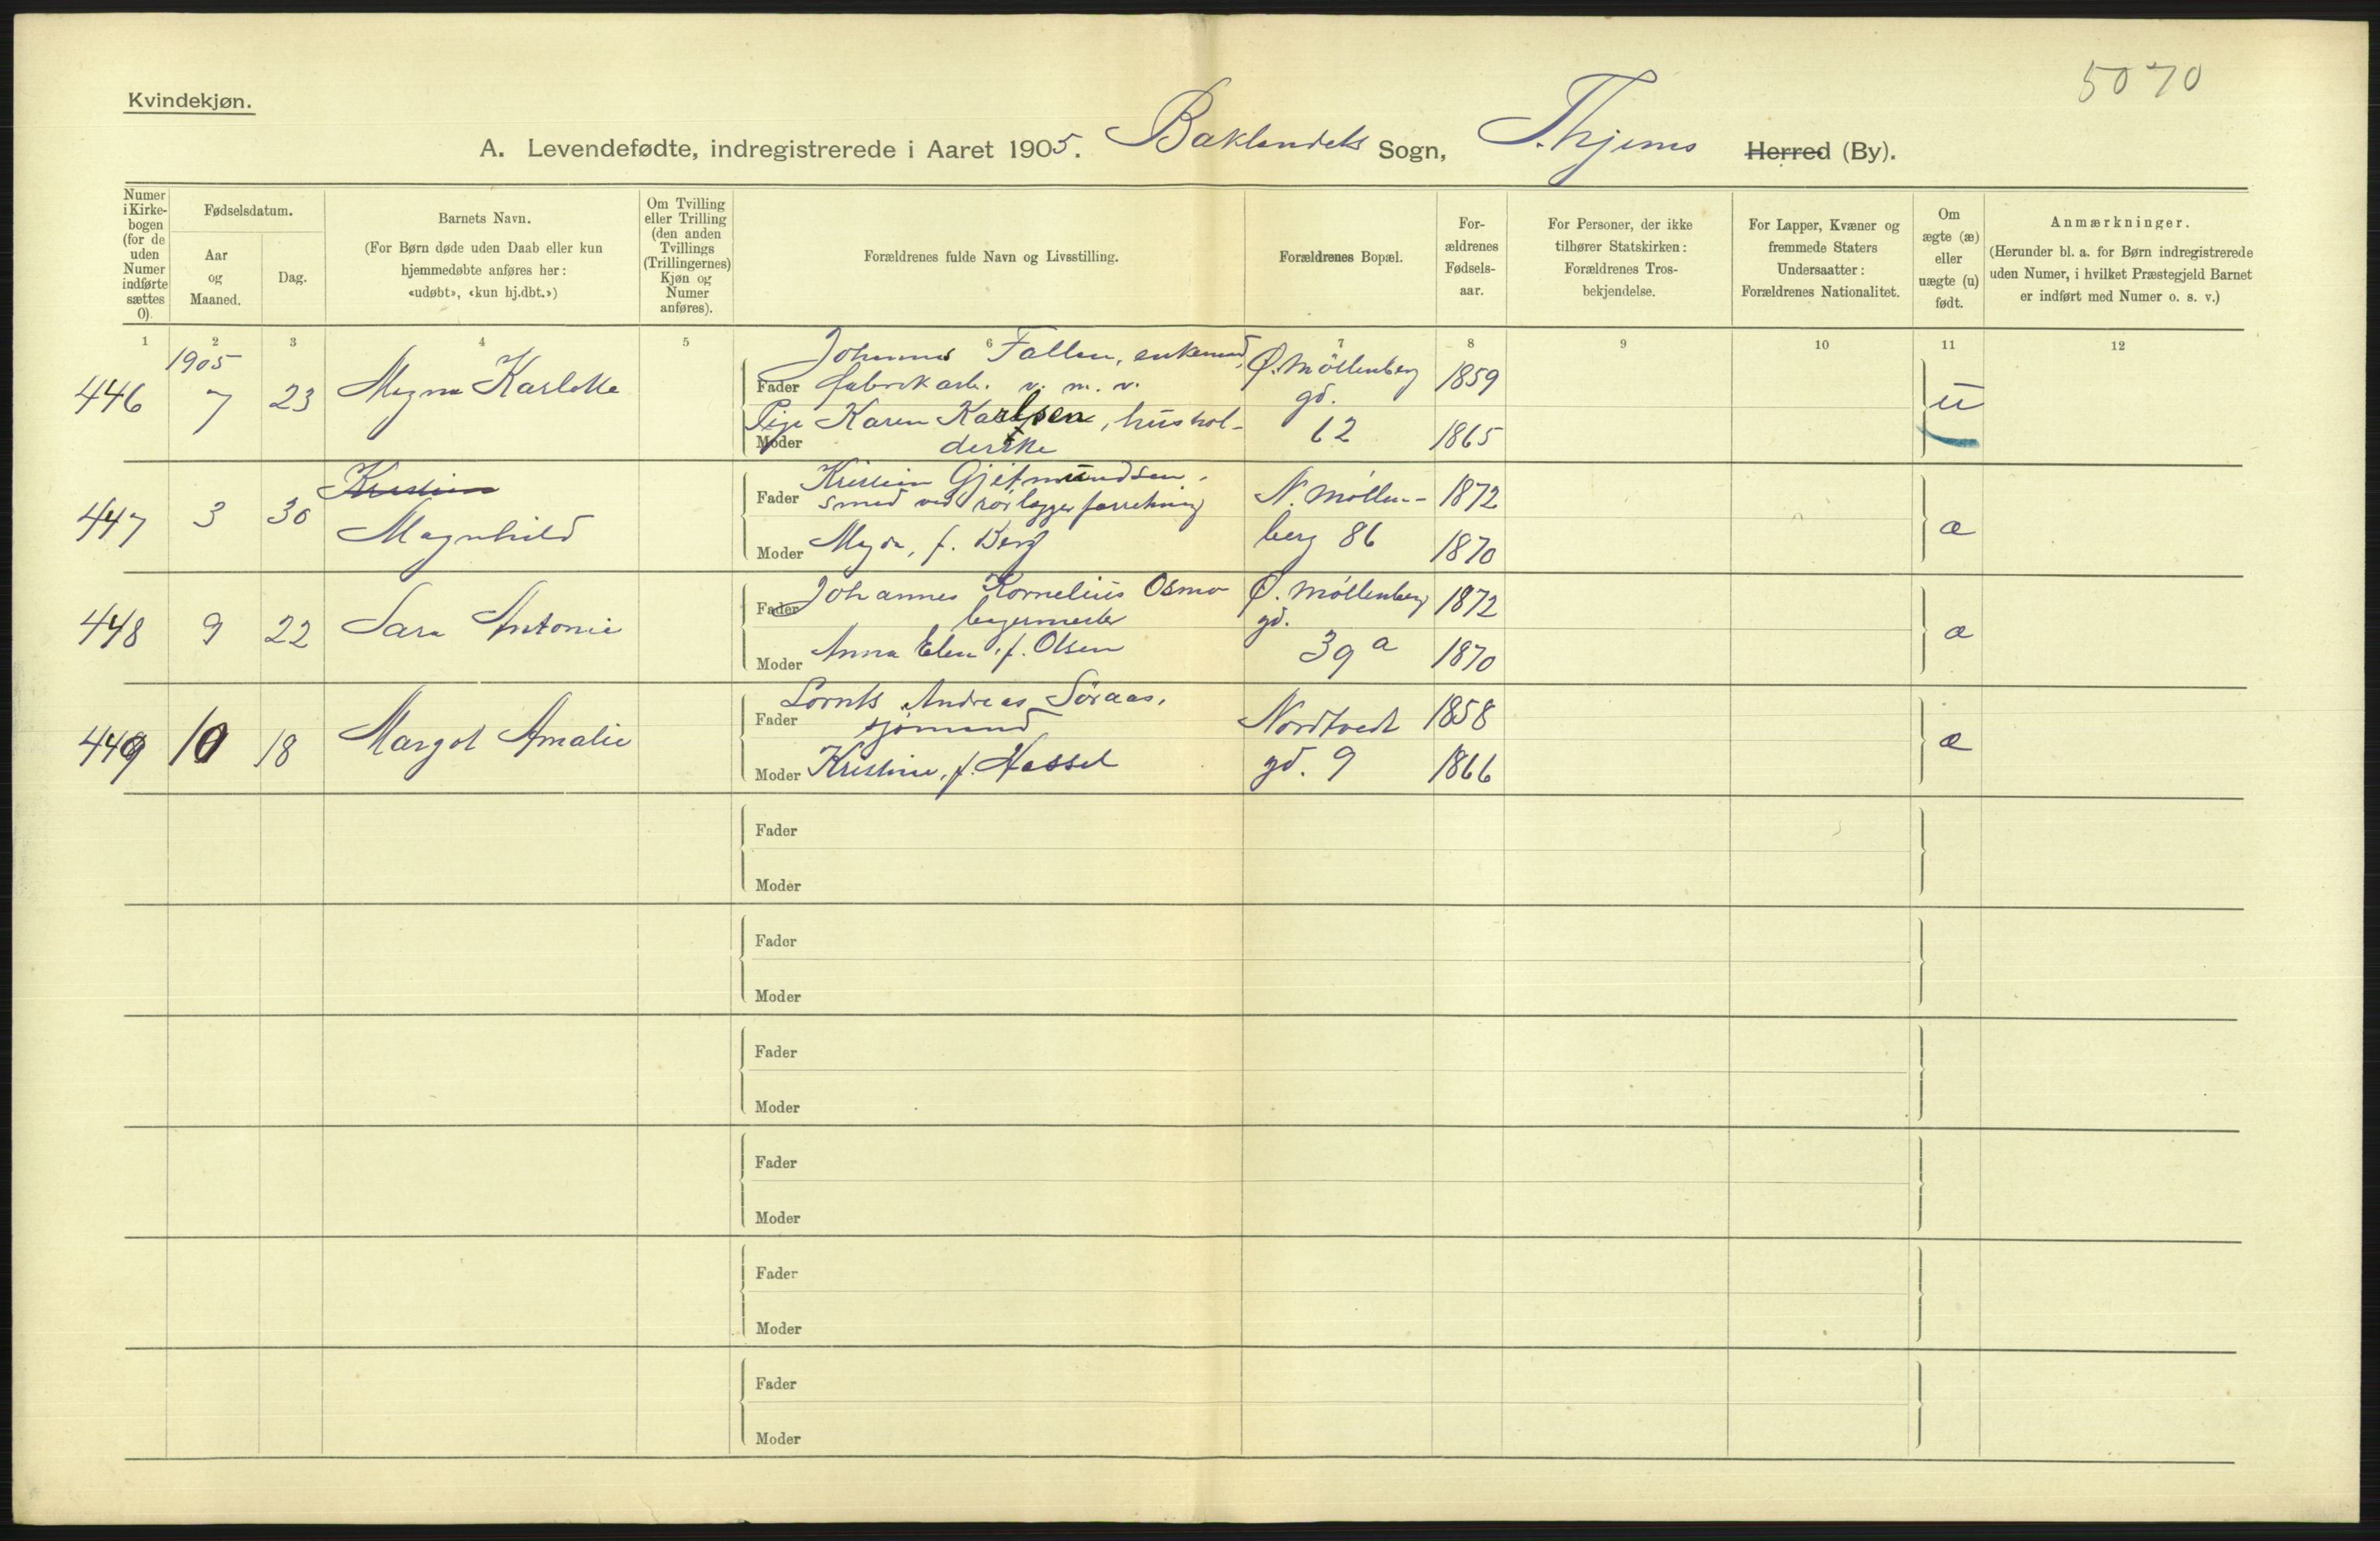 5070
Kvindekjøn.
A. Levendefødte, indregistrerede i Aaret 1905. Baklandets Sogn, T.hjems Herred (By).
Numer i Kirkebogen (for de uden Numer indførte sættes 0).
Fødselsdatum.
Aar og Maaned.
Dag.
Barnets Navn.
(For Børn døde uden Daab eller kun hjemmedøbte anføres her: «udøbt», «kun hj.dbt.»)
Om Tvilling eller Trilling (den anden Tvillings (Trillingernes) Kjøn og Numer anføres).
Forældrenes fulde Navn og Livsstilling.
Forældrenes Bopæl.
Forældrenes Fødselsaar.
For Personer, der ikke tilhører Statskirken: Forældrenes Trosbekjendelse.
For Lapper, Kvæner og fremmede Staters Undersaatter: Forældrenes Nationalitet.
Om ægte (æ) eller uægte (u) født.
Anmærkninger.
(Herunder bl. a. for Børn indregistrerede uden Numer, i hvilket Præstegjeld Barnet er indført med Numer o. s. v.)
1 2 3 4 5 6 7 8 9 10 11 12
1905
446 7 23 Magna Karlotte
Fader Johannes Fallen, enkemand, fabrikarb. v. m. v. Ø. Möllenberg gd. 1859
Moder Pige Karen Karlsen, husholderske 62 1865
u
447 3 30 Kristine Magnhild
Fader Kristian Gjetmundsen, smed ved rörlæggerforretning N. Möllen- 1872
Moder Magda, f. Berg berg 86 1870
æ
448 9 22 Sara Antonie
Fader Johannes Kornelius Osmo bagermester Ø. Möllenberg gd. 1872
Moder Anna Elen, f. Olsen 39 a 1870
æ
449 10 18 Margot Amalie
Fader Lornts Andreas Söraas, sjömand Nordtvedt 1858
Moder Kristine, f. Hassel gd. 9 1866
æ
Fader
Moder
Fader
Moder
Fader
Moder
Fader
Moder
Fader
Moder
Fader
Moder